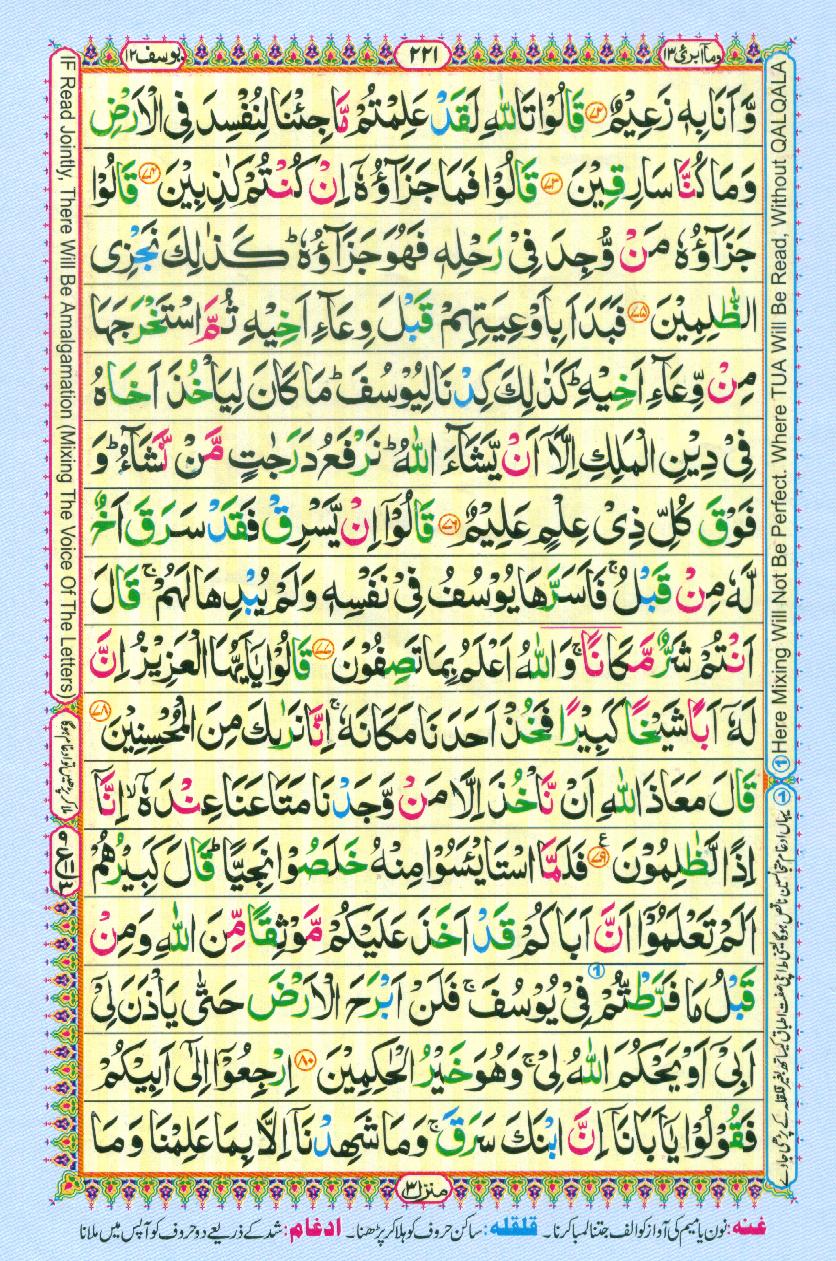 وماابرئ۱۳
۲۲۱
یوسف۱۲
وَّ اَنَا بِهٖ زَعِیْمٌ ﴿۷۲﴾ قَالُوْا تَاللّٰهِ لَقَدْ عَلِمْتُمْ مَّا جِئْنَا لِنُفْسِدَ فِی الْاَرْضِ
وَ مَا كُنَّا سَارِقِیْنَ ﴿۷۳﴾ قَالُوْا فَمَا جَزَآؤُهٗۤ اِنْ كُنْتُمْ كٰذِبِیْنَ ﴿۷۴﴾ قَالُوْا
جَزَآؤُهٗ مَنْ وُّجِدَ فِیْ رَحْلِهٖ فَهُوَ جَزَآؤُهٗ ؕ كَذٰلِكَ نَجْزِی
الظّٰلِمِیْنَ ﴿۷۵﴾ فَبَدَاَ بِاَوْعِیَتِهِمْ قَبْلَ وِعَآءِ اَخِیْهِ ثُمَّ اسْتَخْرَجَهَا
مِنْ وِّعَآءِ اَخِیْهِ ؕ كَذٰلِكَ كِدْنَا لِیُوْسُفَ ؕ مَا كَانَ لِیَاْخُذَ اَخَاهُ
فِیْ دِیْنِ الْمَلِكِ اِلَّاۤ اَنْ یَّشَآءَ اللّٰهُ ؕ نَرْفَعُ دَرَجٰتٍ مَّنْ نَّشَآءُ ؕ وَ
فَوْقَ كُلِّ ذِیْ عِلْمٍ عَلِیْمٌ ﴿۷۶﴾ قَالُوْۤا اِنْ یَّسْرِقْ فَقَدْ سَرَقَ اَخٌ
لَّهٗ مِنْ قَبْلُ ۚ فَاَسَرَّهَا یُوْسُفُ فِیْ نَفْسِهٖ وَ لَمْ یُبْدِهَا لَهُمْ ۚ قَالَ
اَنْتُمْ شَرٌّ مَّكَانًا ۚ وَ اللّٰهُ اَعْلَمُ بِمَا تَصِفُوْنَ ﴿۷۷﴾ قَالُوْا یٰۤاَیُّهَا الْعَزِیْزُ اِنَّ
لَهٗۤ اَبًا شَیْخًا كَبِیْرًا فَخُذْ اَحَدَنَا مَكَانَهٗ ۚ اِنَّا نَرٰىكَ مِنَ الْمُحْسِنِیْنَ ﴿۷۸﴾
قَالَ مَعَاذَ اللّٰهِ اَنْ نَّاْخُذَ اِلَّا مَنْ وَّجَدْنَا مَتَاعَنَا عِنْدَهٗۤ ۙ اِنَّاۤ
اِذًا لَّظٰلِمُوْنَ ﴿۷۹﴾ ع فَلَمَّا اسْتَایْـَٔسُوْا مِنْهُ خَلَصُوْا نَجِیًّا ؕ قَالَ كَبِیْرُهُمْ
اَلَمْ تَعْلَمُوْۤا اَنَّ اَبَاكُمْ قَدْ اَخَذَ عَلَیْكُمْ مَّوْثِقًا مِّنَ اللّٰهِ وَ مِنْ
قَبْلُ مَا فَرَّطْتُّمْ ① فِیْ یُوْسُفَ ۚ فَلَنْ اَبْرَحَ الْاَرْضَ حَتّٰی یَاْذَنَ لِیْۤ
اَبِیْۤ اَوْ یَحْكُمَ اللّٰهُ لِیْ ۚ وَ هُوَ خَیْرُ الْحٰكِمِیْنَ ﴿۸۰﴾ اِرْجِعُوْۤا اِلٰۤی اَبِیْكُمْ
فَقُوْلُوْا یٰۤاَبَانَاۤ اِنَّ ابْنَكَ سَرَقَ ۚ وَ مَا شَهِدْنَاۤ اِلَّا بِمَا عَلِمْنَا وَ مَا
منزل۳
① Here Mixing Will Not Be Perfect. Where TUA Will Be Read, Without QALQALA
IF Read Jointly, There Will Be Amalgamation (Mixing The Voice Of The Letters)
ملا کر پڑھیں تو ادغام ہوگا
غنہ: نون یا میم کی آواز کو الف جتنا لمبا کرنا۔ قلقلہ: ساکن حروف کو ہلا کر پڑھنا۔ ادغام: شد کے ذریعے دو حروف کو آپس میں ملانا